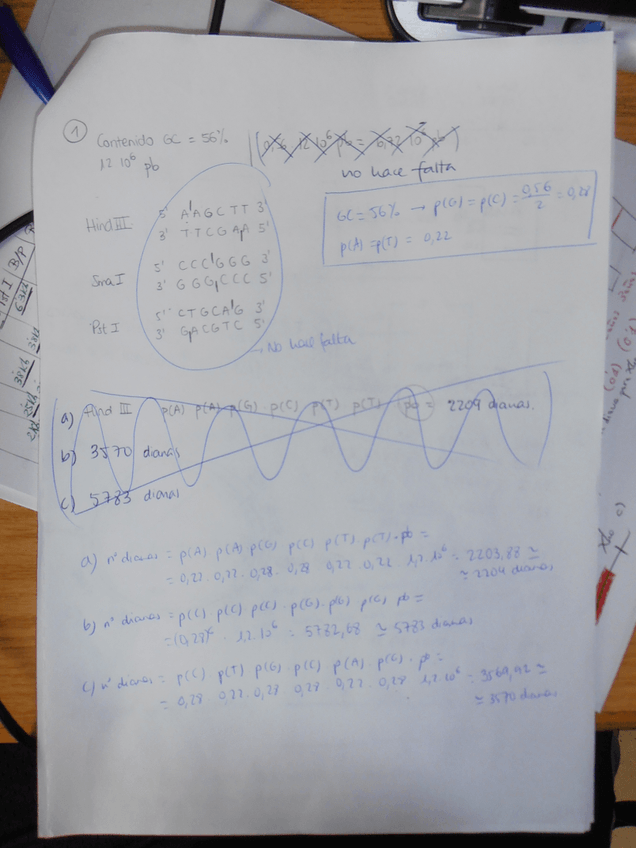 1
Contenido GC = 56%
12 10⁶ pb
no hace falta
GC = 56% → p(G) = p(C) = 0,56/2 = 0,28
p(A) = p(T) = 0,22
Hind III
5' A'AGCTT 3'
3' TTCGAA 5'
Sma I
5' CCC'GGG 3'
3' GGGCCC 5'
Pst I
5' CTGCA'G 3'
3' GACGTC 5'
→ No hace falta
a) Hind III p(A) p(A) p(G) p(C) p(T) p(T) pb = 2204 dianas.
b) 3570 dianas
c) 5783 dianas
a) nº dianas = p(A) p(A) p(G) p(C) p(T) p(T) · pb =
= 0,22 · 0,22 · 0,28 · 0,28 0,22 0,22 · 12 · 10⁶ = 2203,88 ≅
≅ 2204 dianas
b) nº dianas = p(C) p(C) p(C) · p(G) · p(G) p(G) pb =
= (0,28)⁶ · 12 · 10⁶ = 5782,68 ≅ 5783 dianas
c) nº dianas = p(C) p(T) p(G) · p(C) p(A) · p(G) · pb =
= 0,28 0,22 · 0,28 0,28 0,22 · 0,28 12 · 10⁶ = 3569,92 ≅
≅ 3570 dianas